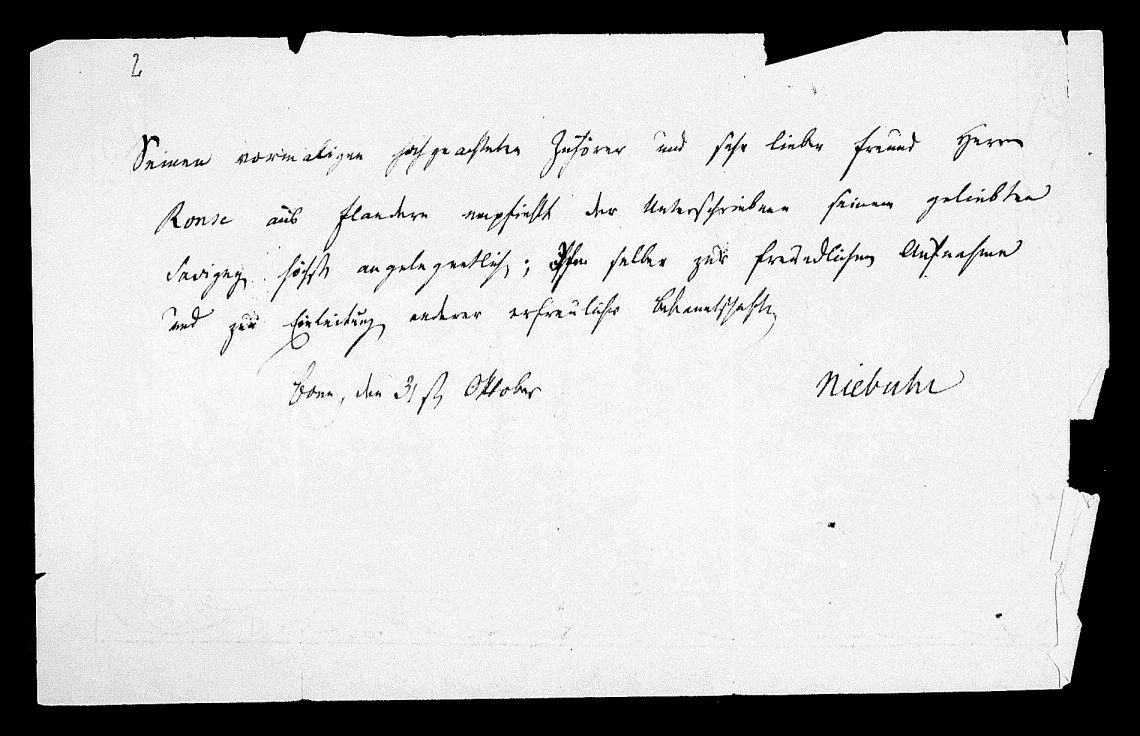 2
Seinen vormaligen hochgeachteten Zuhörer und sehr lieben Freund Herrn
Ronse aus Flandern empfiehlt der Unterschriebene seinem geliebten
Savigny höchst angelegentlich; Ihm selber zur freundlichen Aufnahme
und zur Einleitung anderer erfreulicher Bekanntschaften
Bonn, den 31st Oktober
Niebuhr